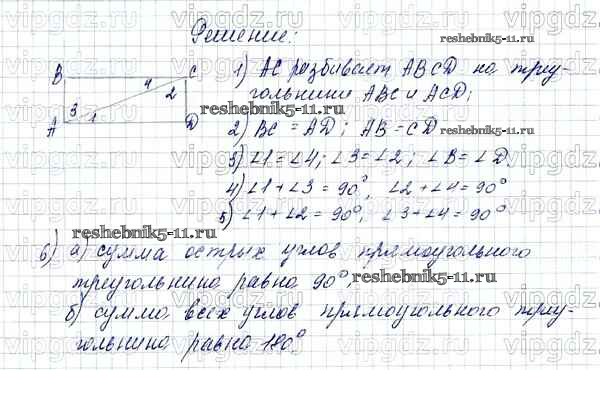 vipgdz.ru vipgdz.ru vipgdz.ru vipgdz.ru
Решение:
reshebnik5-11.ru
B C
4
2
3
1
A D
1) AC разбивает ABCD на треу-
гольники ABC и ACD;
reshebnik5-11.ru
2) BC = AD; AB = CD
reshebnik5-11.ru
3) ∠1 = ∠4; ∠3 = ∠2; ∠B = ∠D.
4) ∠1 + ∠3 = 90°, ∠2 + ∠4 = 90°
5) ∠1 + ∠2 = 90°, ∠3 + ∠4 = 90°
reshebnik5-11.ru
6) а) сумма острых углов прямоугольного
треугольника равна 90°,
reshebnik5-11.ru
б) сумма всех углов прямоугольного треу-
гольника равна 180°
vipgdz.ru vipgdz.ru vipgdz.ru vipgdz.ru